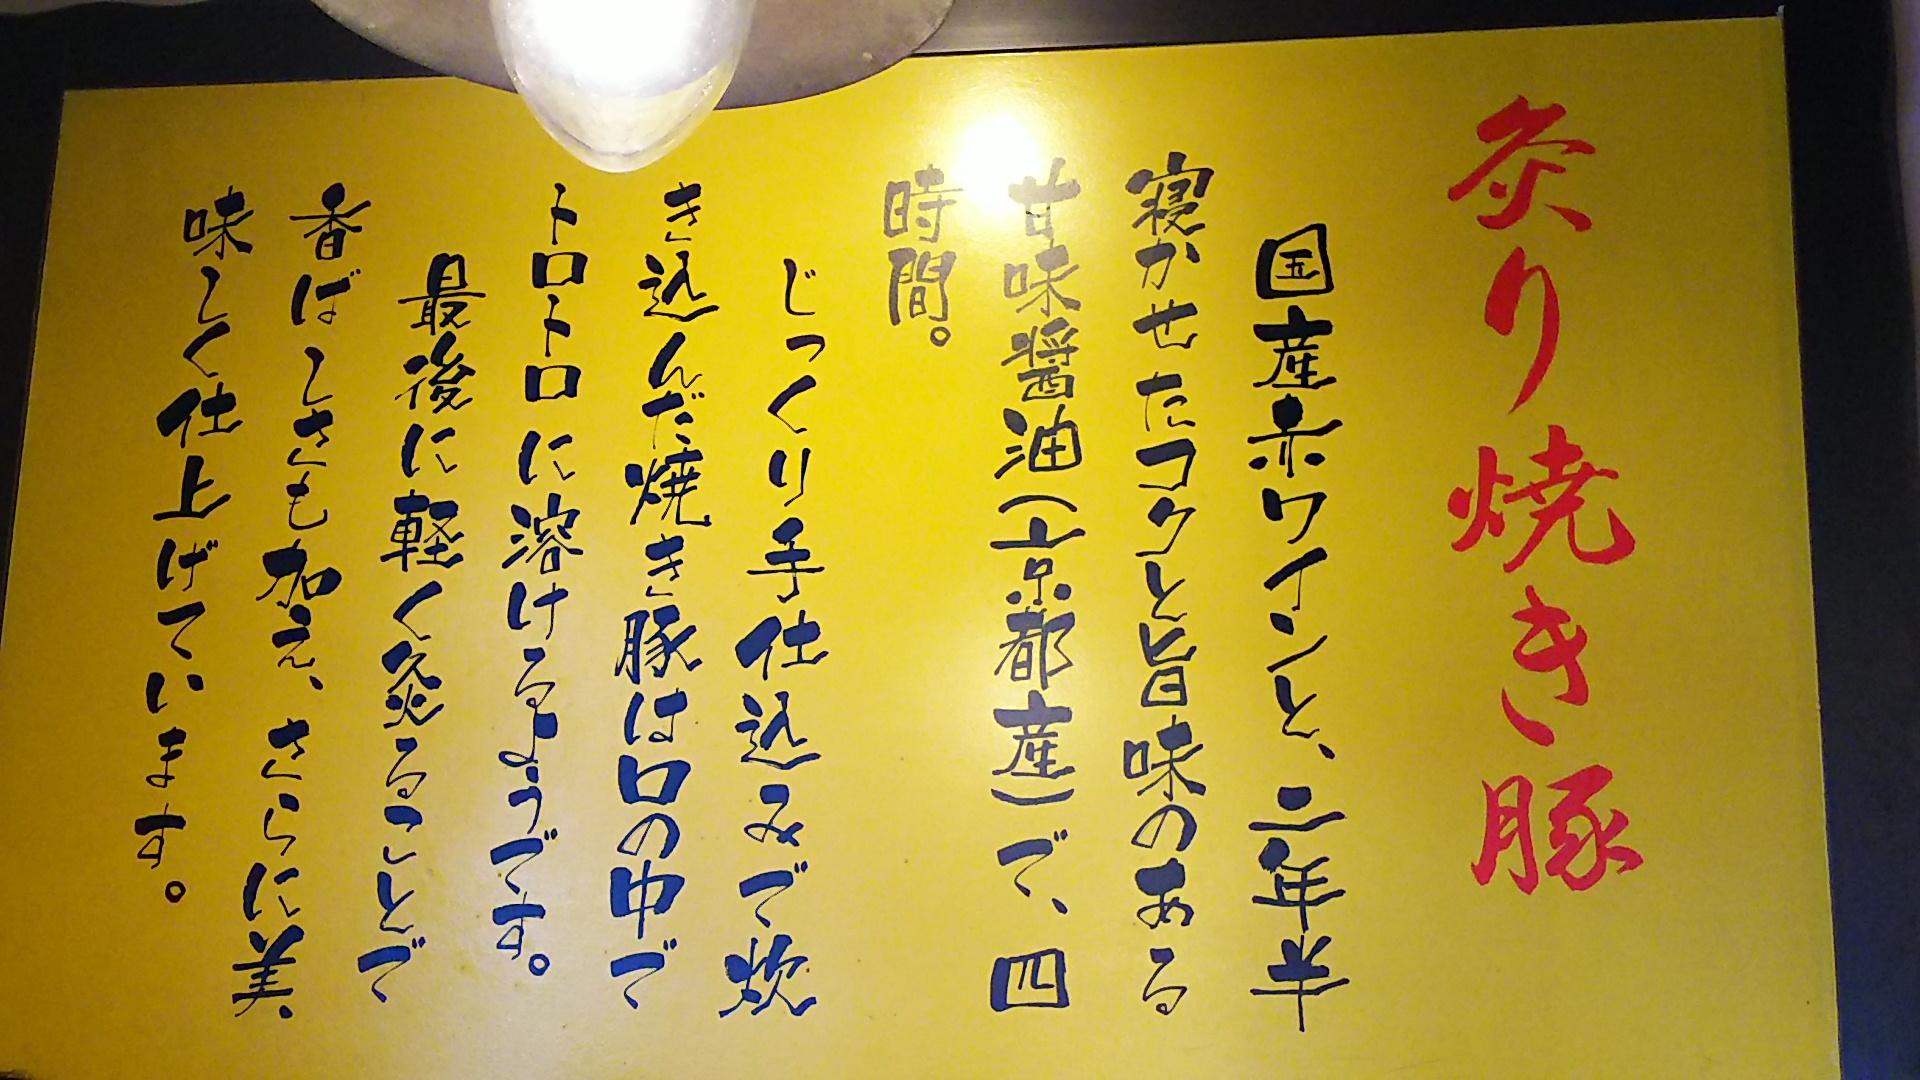 炙り焼き豚
国産赤ワインと、二年半
寝かせたコクと旨味のある
甘味醤油(京都産)で、四
時間。
じっくり手仕込みで炊
き込んだ焼き豚は口の中で
トロトロに溶けるようです。
最後に軽く炙ることで
香ばしさも加え、さらに美
味しく仕上げています。